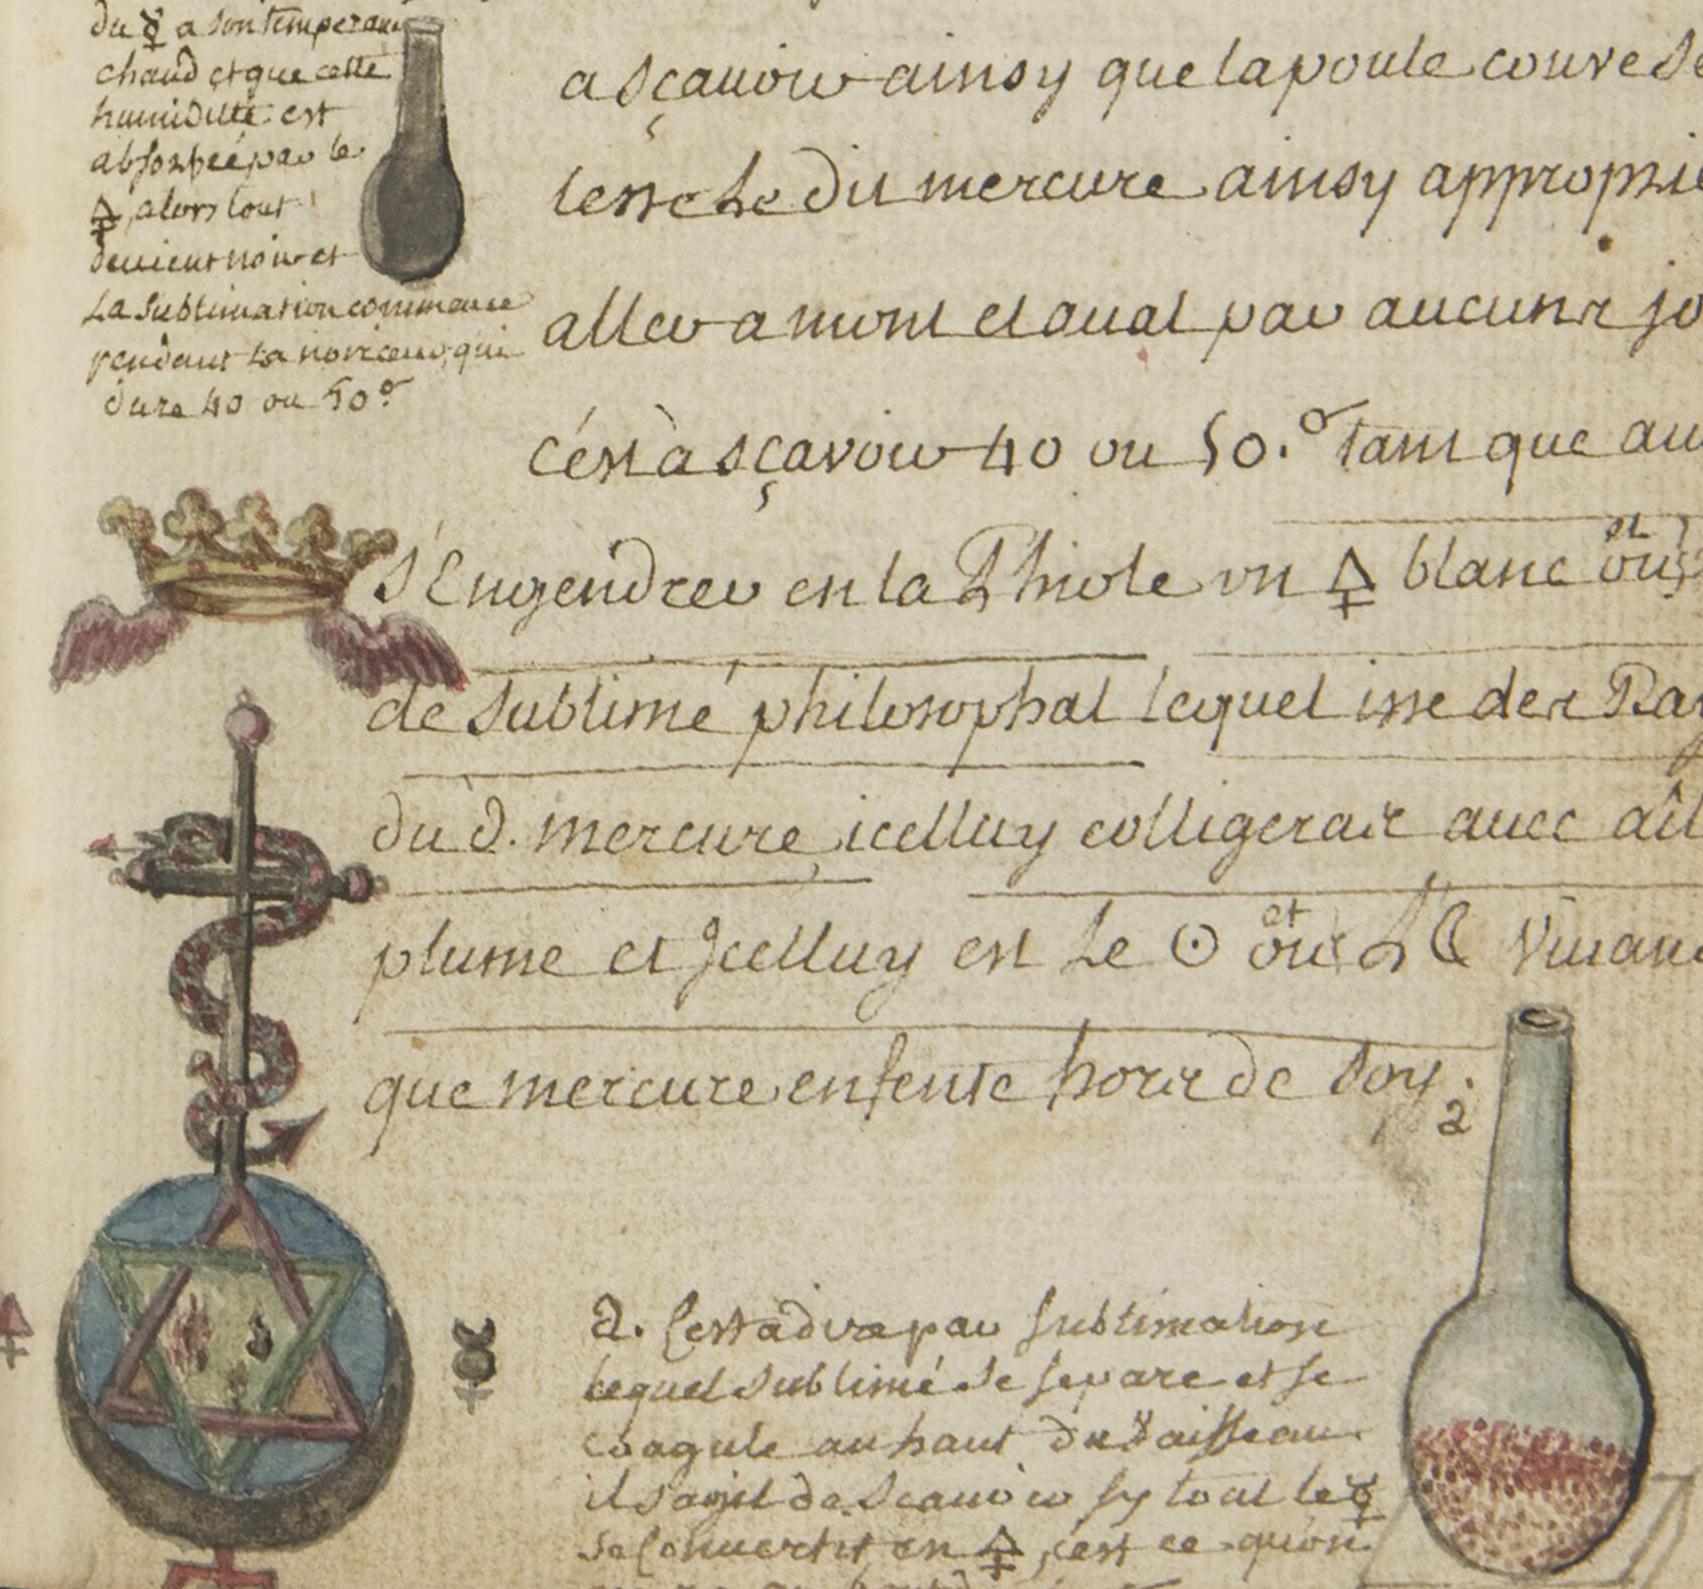 du ☿ a son temperam
chaud et que cette
humidité est
absorbée par le
🜍 alors tout
devient noir et
La sublimation commence
pendant La noirceur, qui
dure 40 ou 50.
a sçauoir ainsy que la poule couve Se
du mercure ainsy approprié
aller a mont et aual par aucuns jo
c'ést à sçavoir 40 ou 50. tant que au
s'Engendrer en la Phiole un 🜍 blanc et ou
de Sublimé philosophal lequel isse des Ra
du d. mercure, icelluy colligeras auec aîl
plume et Jcelluy est Le ☉ et ou La ☾ Viuan
que mercure enfente hors de Soy. 2
☿
2. C'est a dire par Sublimation
lequel Sublimé Se separe et se
coagule au haut du vaisseau.
il s'agit de Scauoir sy tout le ☿
se Convertit en 🜍, c'est ce qu'on